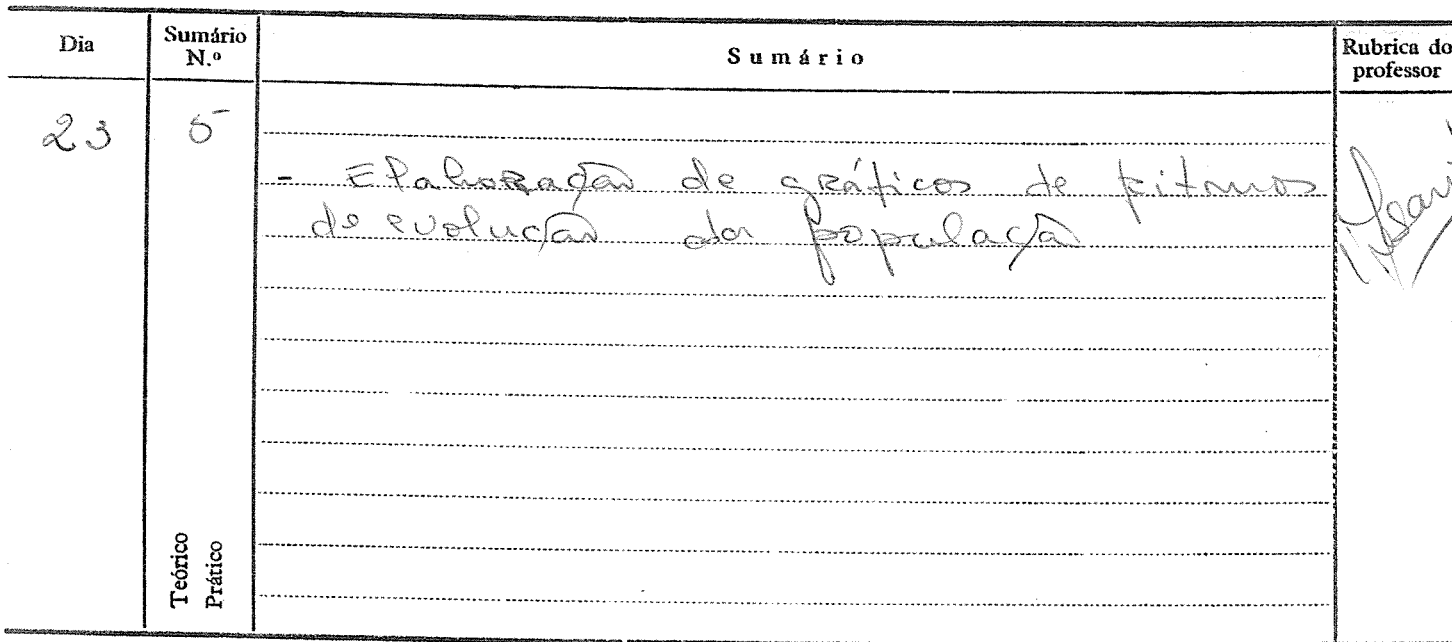 Dia
Sumário N.º
Sumário
Rubrica do professor
23
5
- Elaboração de gráficos de ritmos
de evolução da população
Teórico
Prático